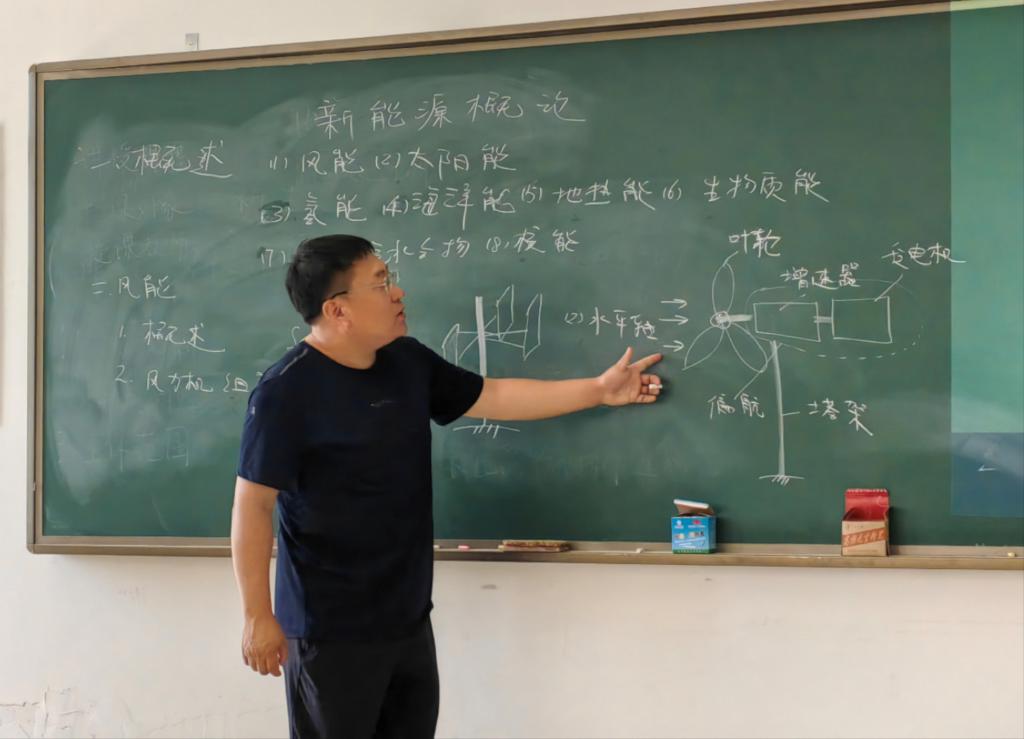 新能源概论
概述 (1)风能 (2)太阳能
(3)氢能 (4)海洋能 (5)地热能 (6)生物质能
(7) 水合物 (8)核能
二.风能
1. 概述
2. 风力机组
(2)水平轴
叶轮
增速器
发电机
偏航
塔架